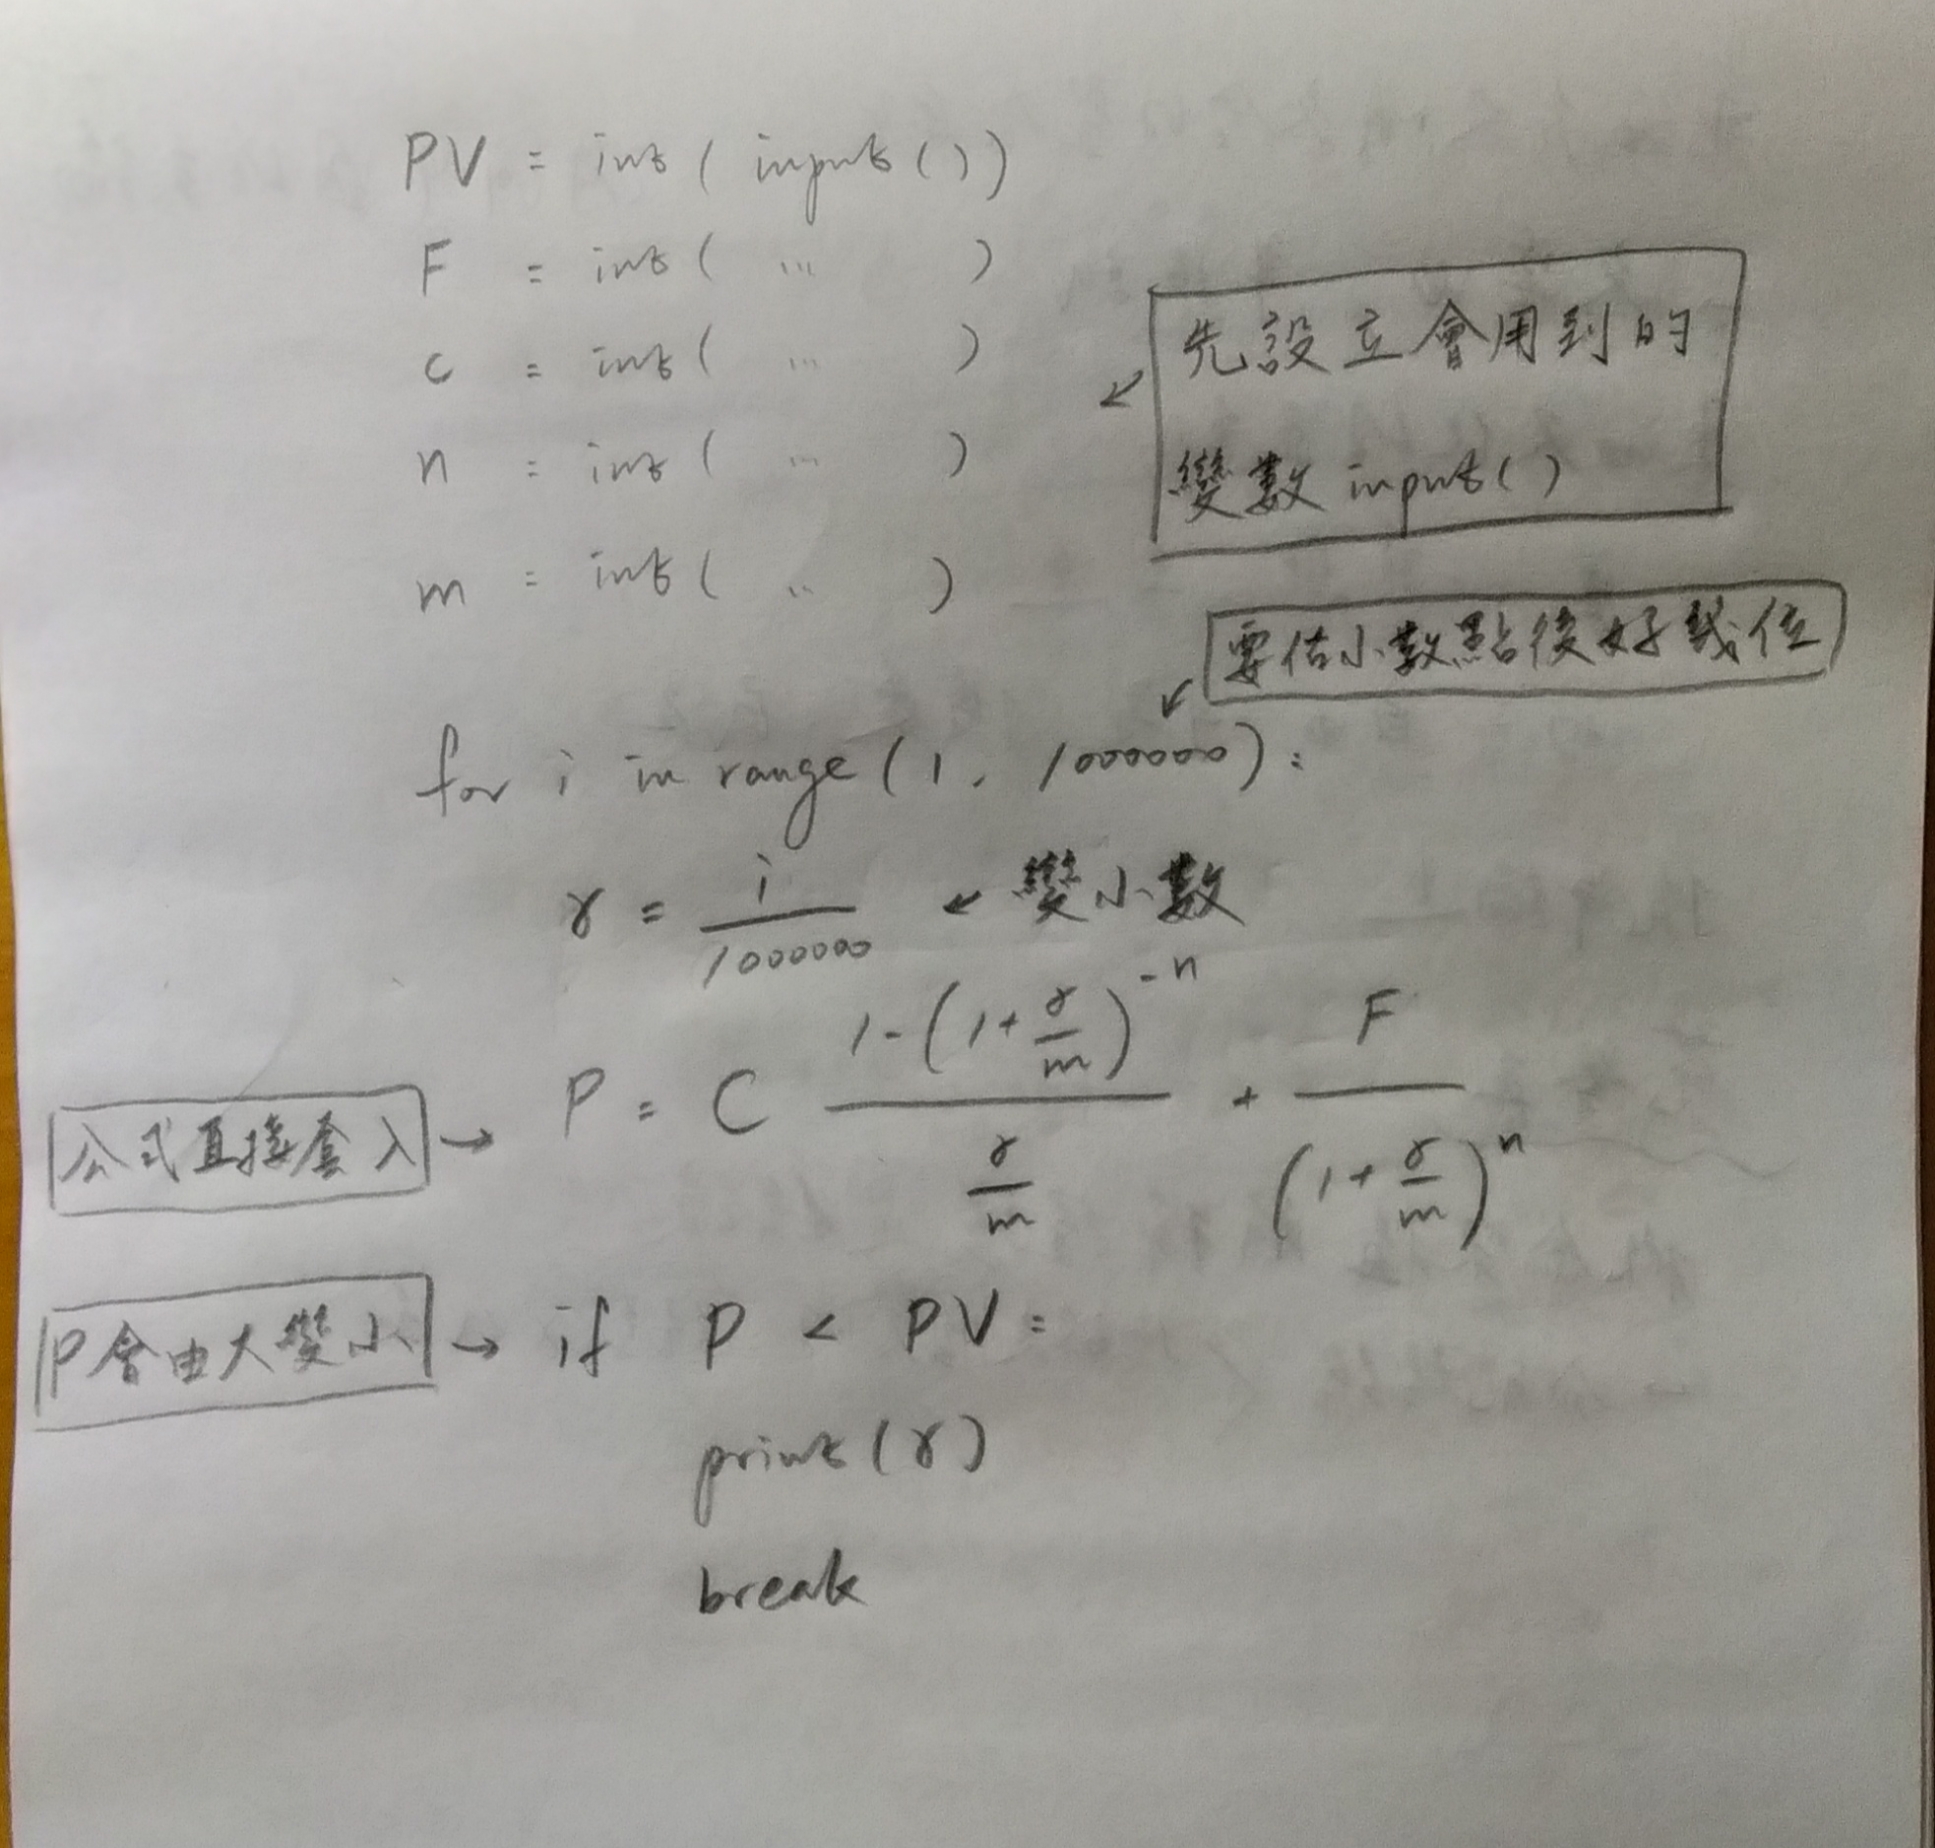 PV = int ( input ( ) )
F = int ( ... )
c = int ( ... )
先設立會用到的
n = int ( ... )
變數 input ( )
m = int ( .. )
要估小數點後好幾位
for i in range ( 1 , 1000000 ) :
r = i / 1000000 ← 變小數
公式直接套入 → P = C (1-(1+r/m)^-n)/(r/m) + F/(1+r/m)^n
P會由大變小 → if P < PV :
print ( r )
break